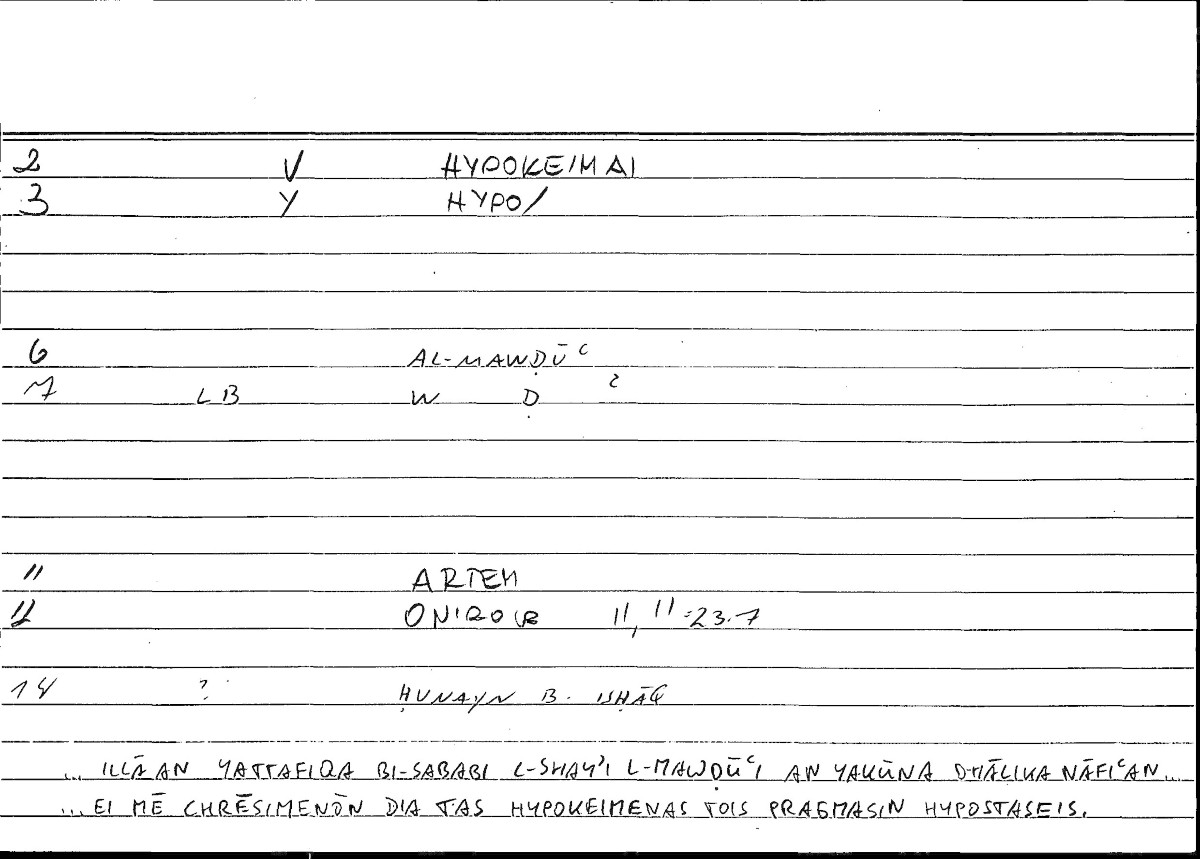 2 V HYPOKEIMAI
3 Y HYPO/
6 AL-MAWḌŪʿ
7 LB W Ḍ ʿ
11 ARTEM
12 ONIROCR 11, 11=23.7
14 ? ḤUNAYN B. ISḤĀQ
... ILLĀ AN YATTAFIQA BI-SABABI L-SHAYʾI L-MAWḌŪʿI AN YAKŪNA DHĀLIKA NĀFIʿAN...
... EI MĒ CHRĒSIMENŌN DIA TAS HYPOKEIMENAS TOIS PRAGMASIN HYPOSTASEIS.